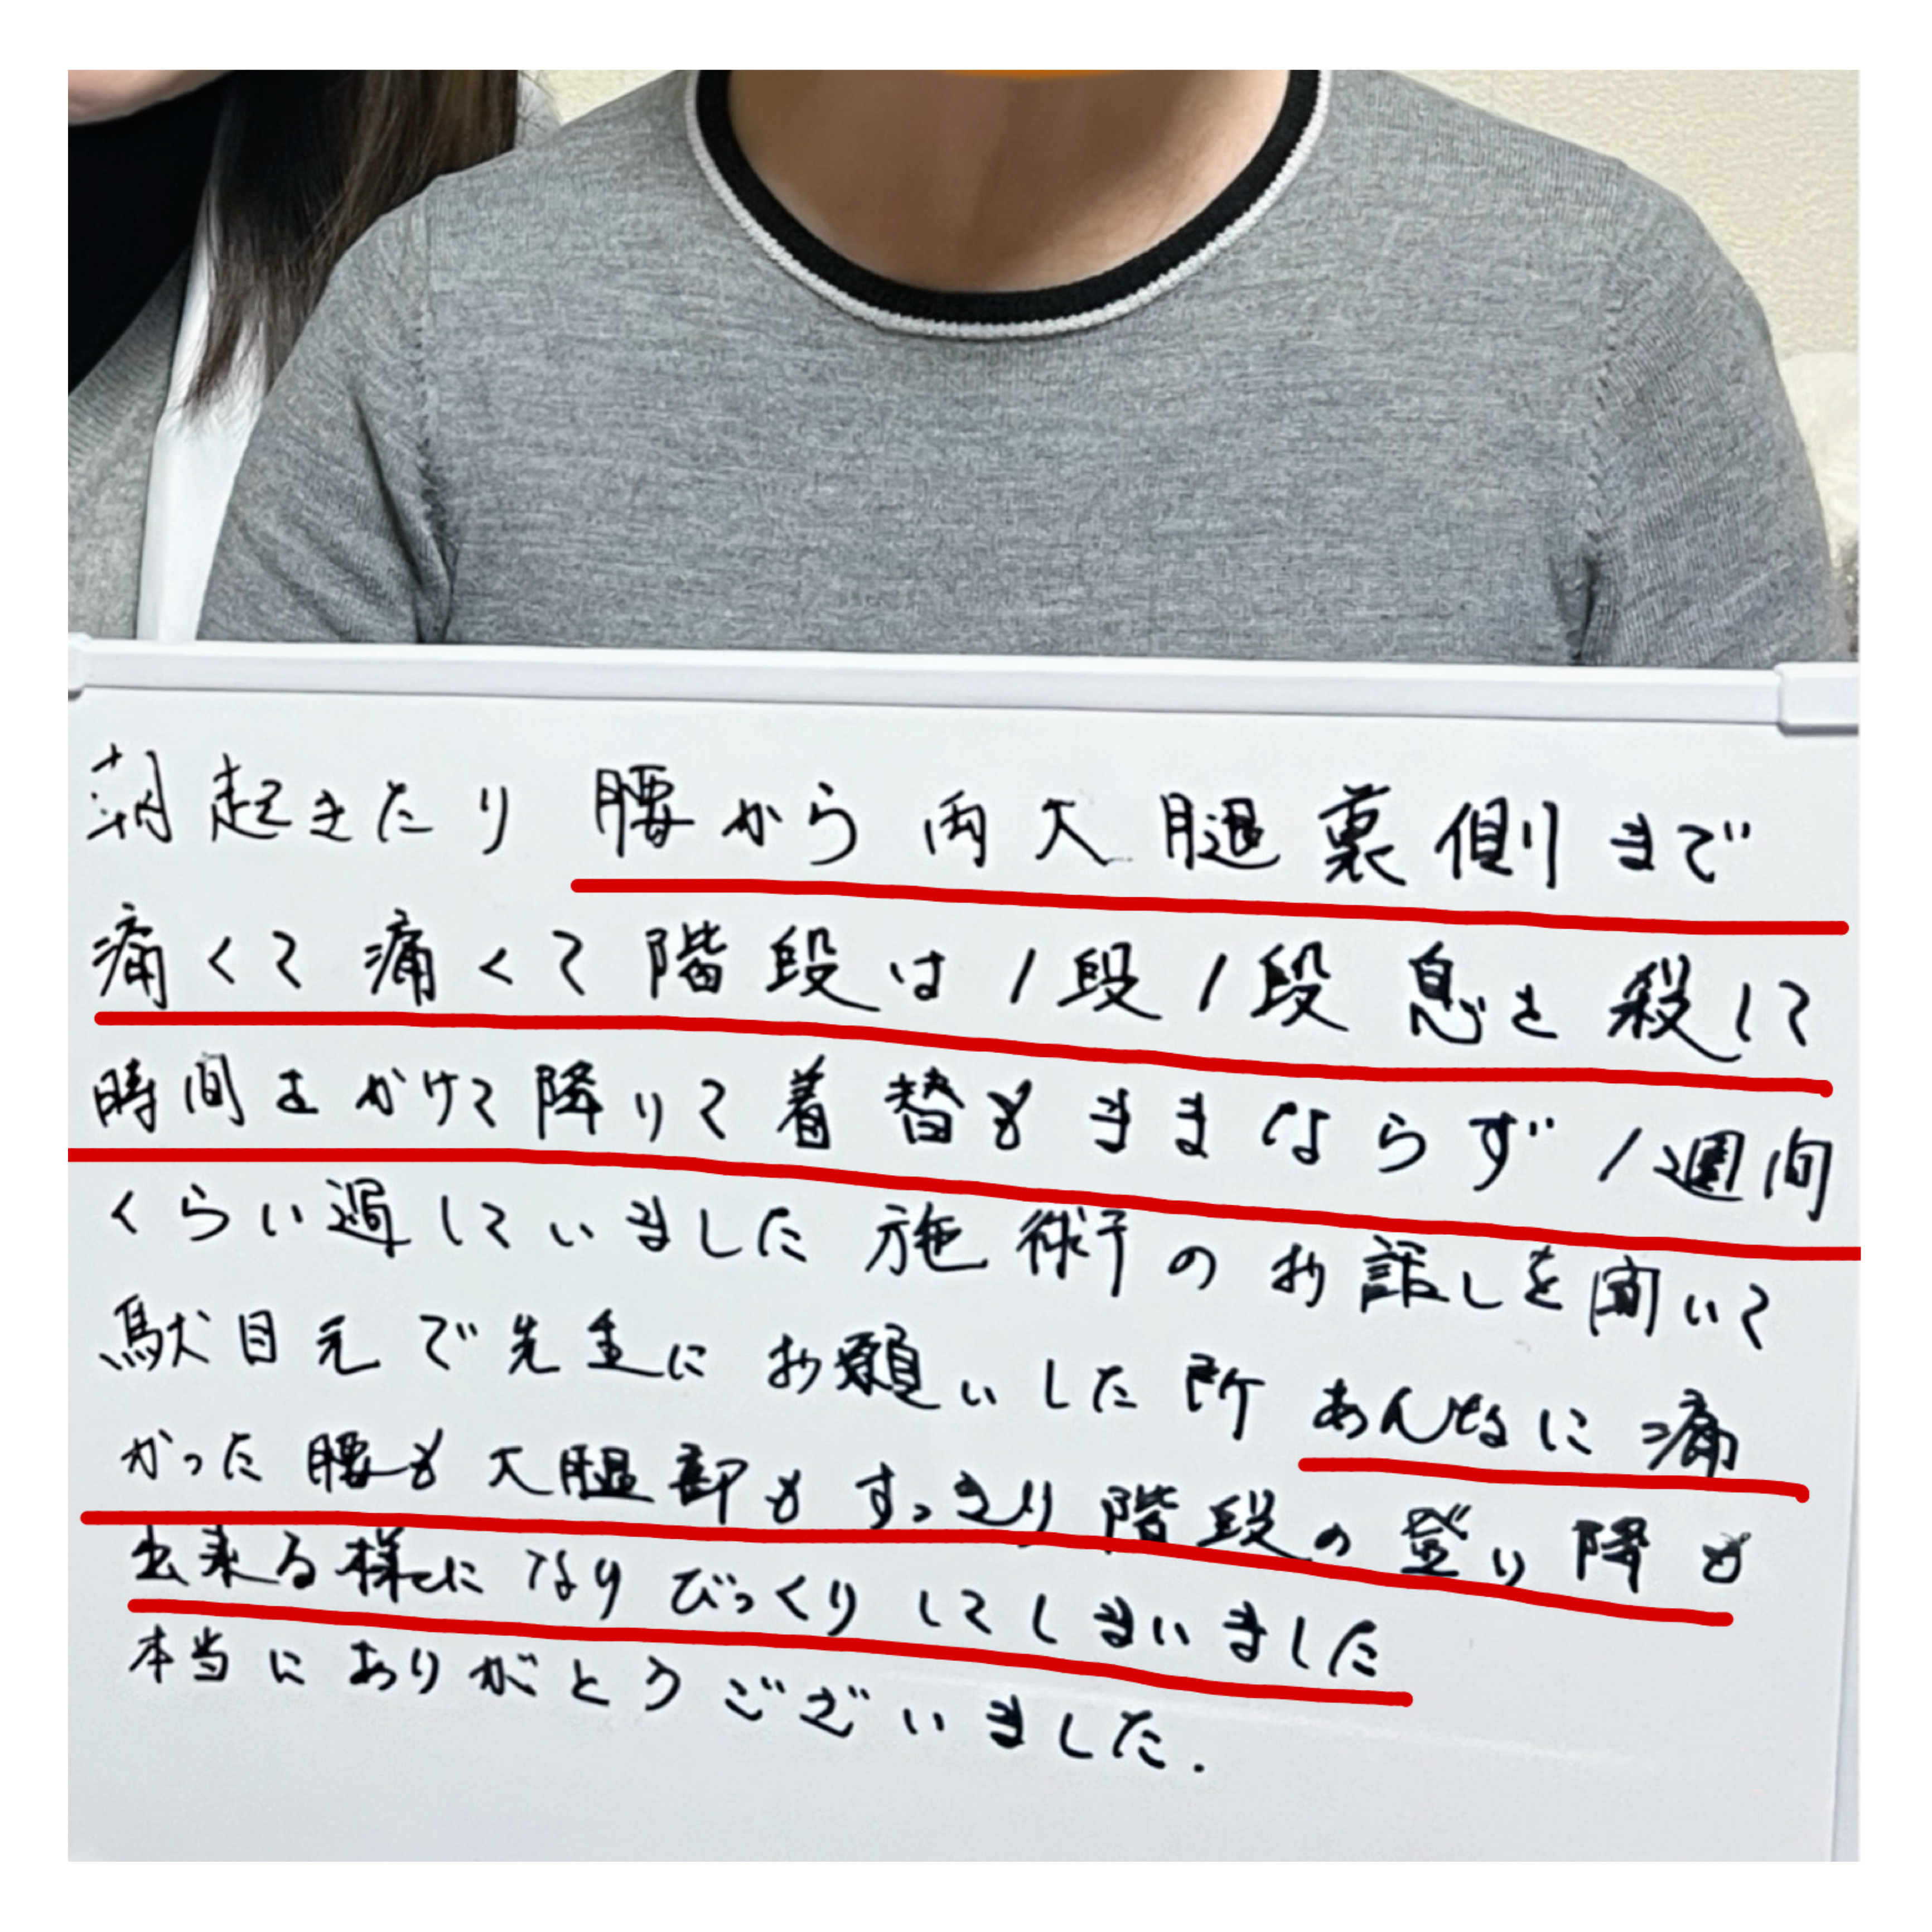 朝起きたり 腰から両大腿裏側まで
痛くて痛くて階段は1段1段息を殺して
時間をかけて降りて着替もままならず1週間
くらい過していました 施術のお話しを聞いて
駄目元で先生にお願いした所 あんなに痛
かった腰も大腿部もすっきり階段の登り降も
出来る様になりびっくりしてしまいました
本当にありがとうございました.